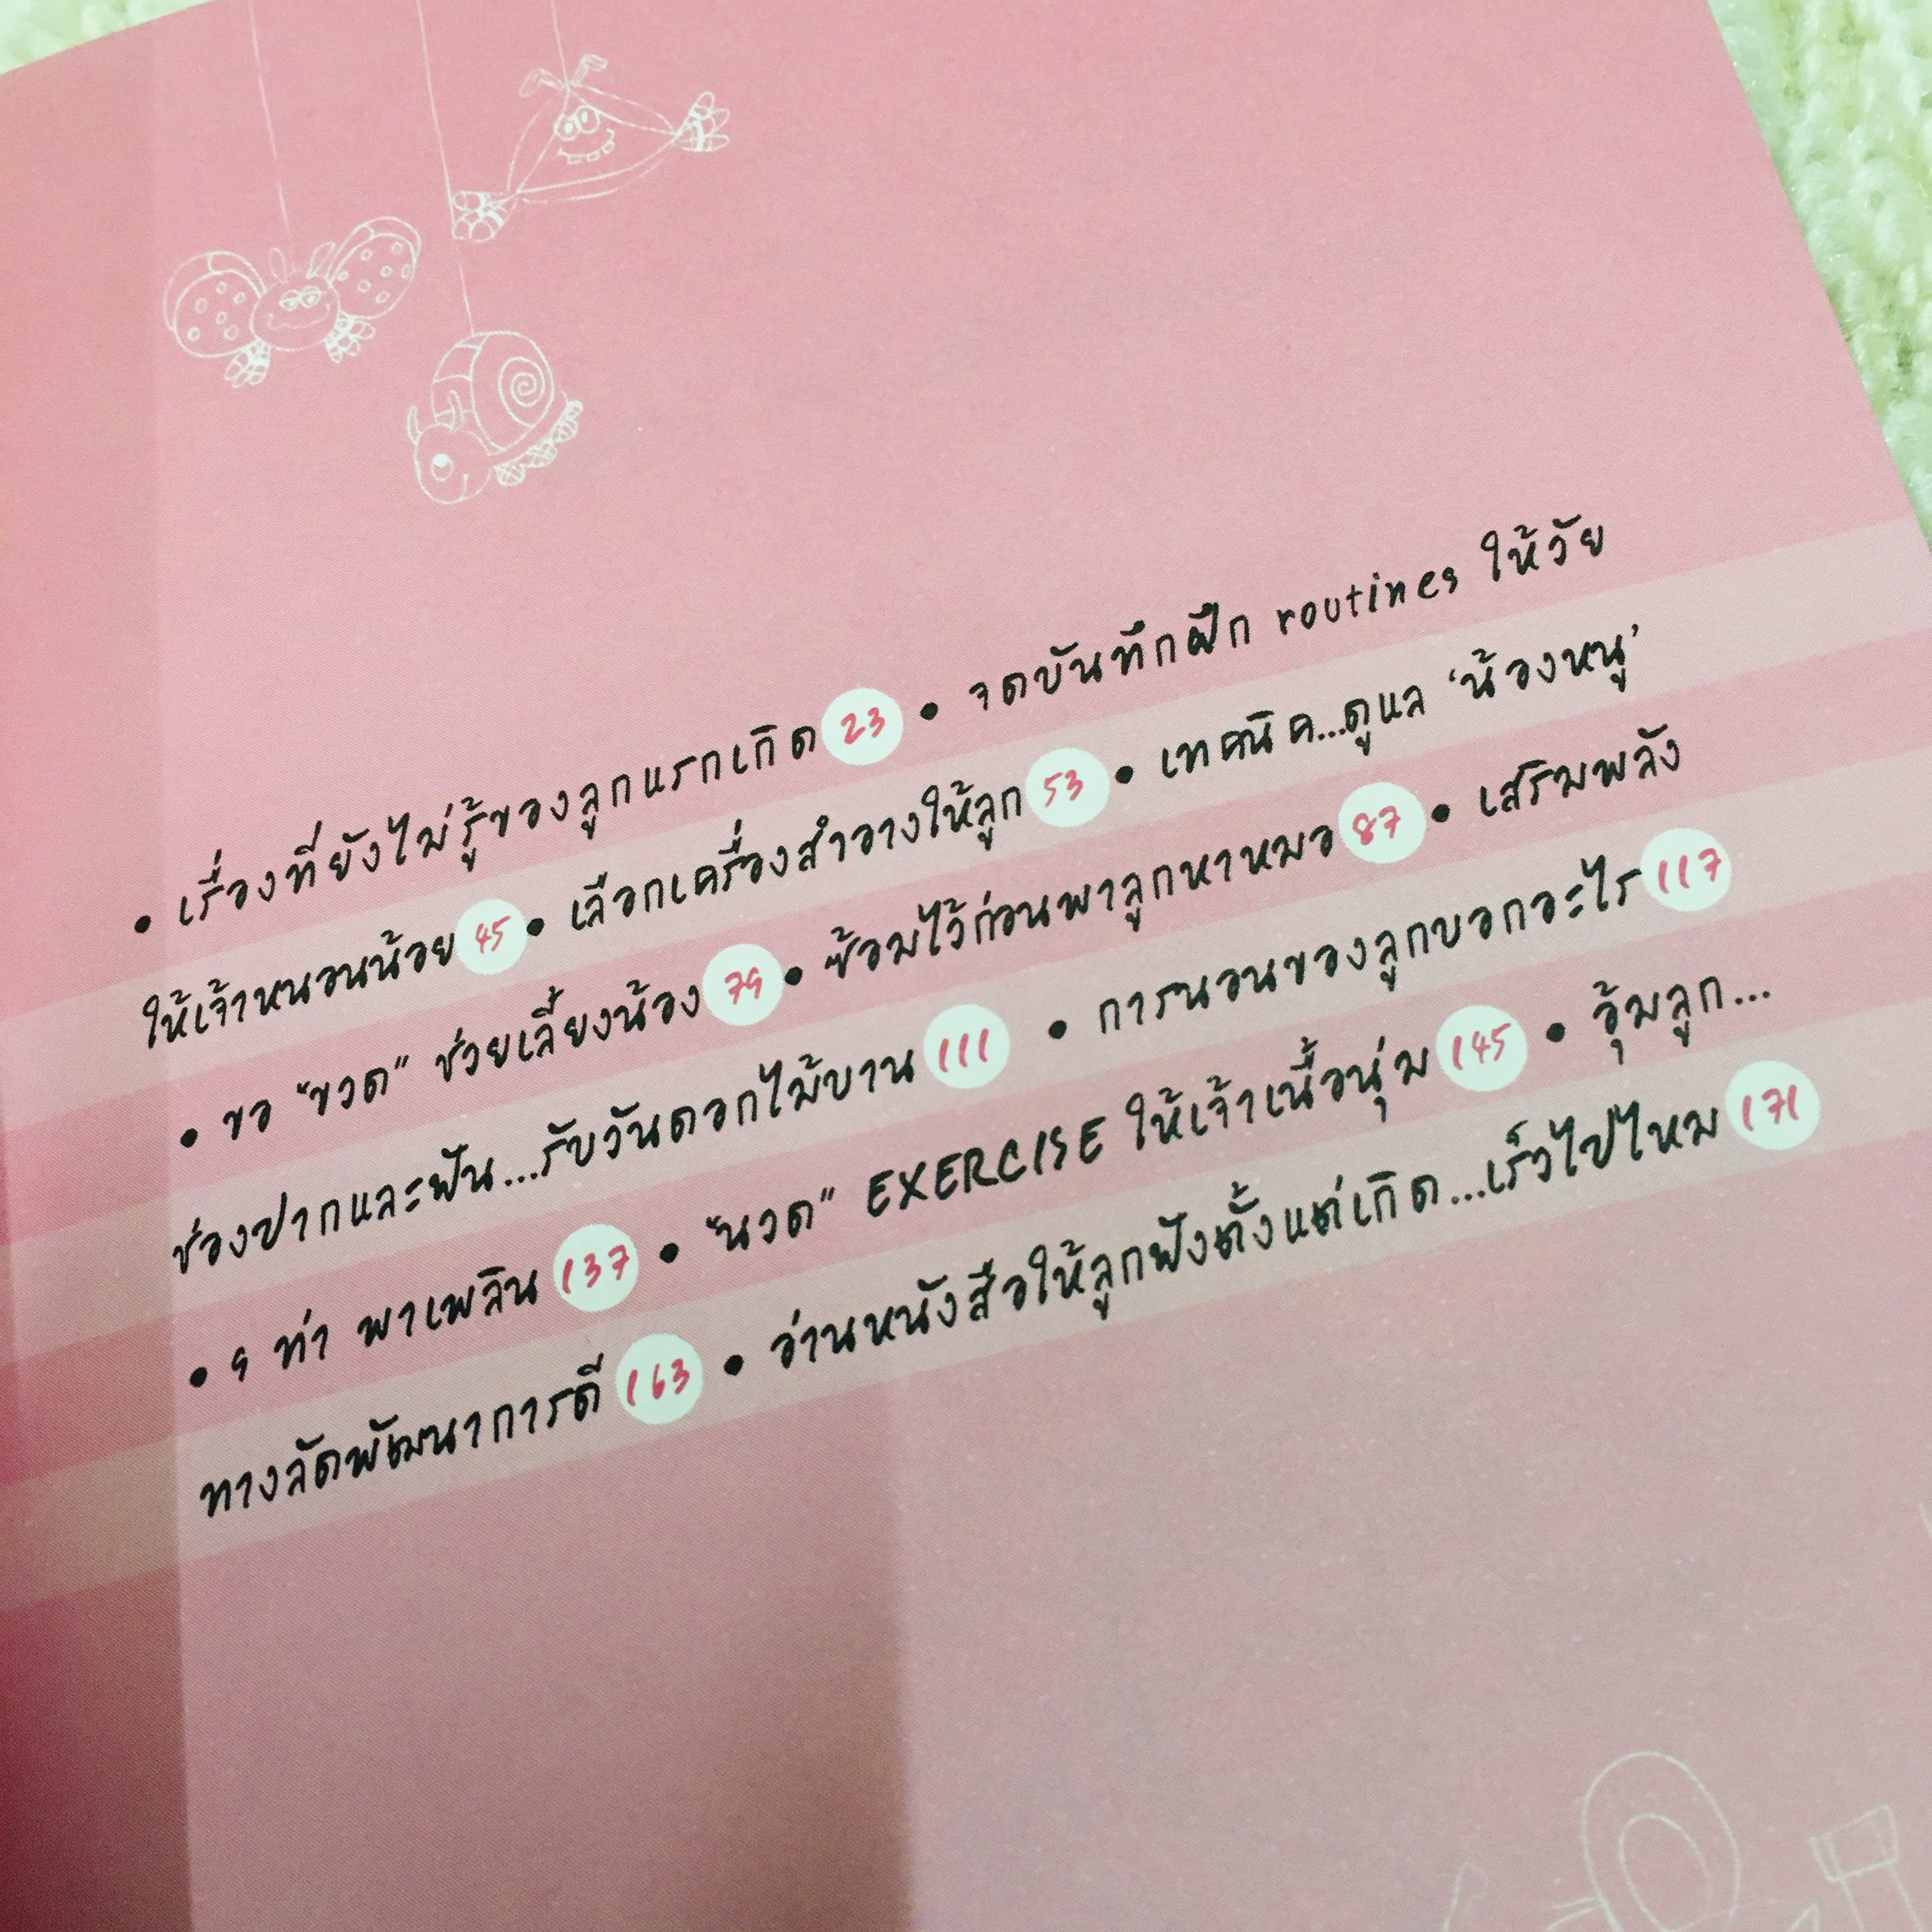 • เรื่องที่ยังไม่รู้ของลูกแรกเกิด 23 • จดบันทึกฝึก routines ให้วัย
ให้เจ้าหนอนน้อย 45 • เลือกเครื่องสำอางให้ลูก 53 • เทคนิค...ดูแล ‘น้องหนู’
• ขอ "ขวด" ช่วยเลี้ยงน้อง 79 • ซ้อมไว้ก่อนพาลูกหาหมอ 87 • เสริมพลัง
ช่องปากและฟัน...รับวันดอกไม้บาน 111 • การนอนของลูกบอกอะไร 117
• 9 ท่า พาเพลิน 137 • "นวด" EXERCISE ให้เจ้าเนื้อนุ่ม 145 • อุ้มลูก...
ทางลัดพัฒนาการดี 163 • อ่านหนังสือให้ลูกฟังตั้งแต่เกิด...เร็วไปไหม 171